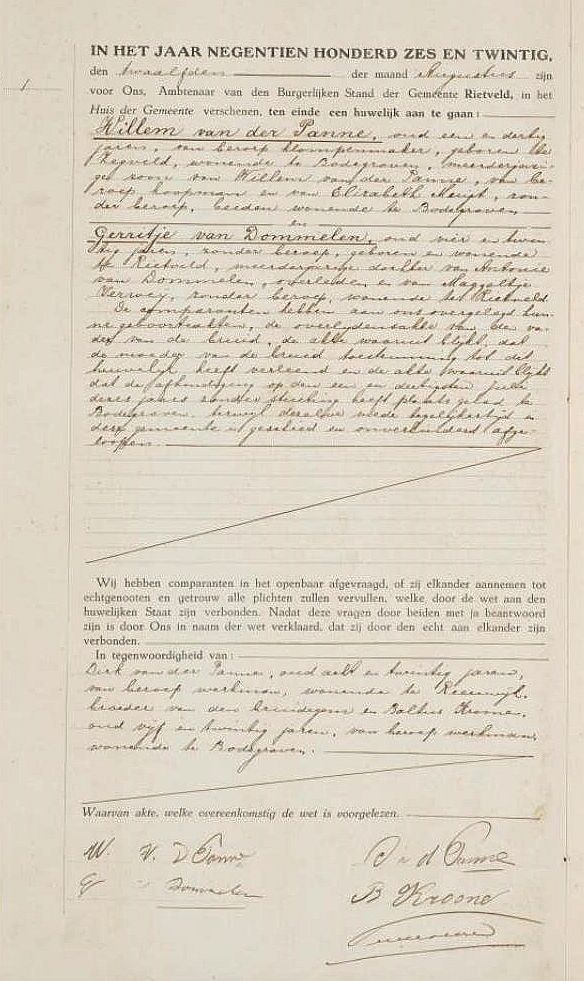 1
IN HET JAAR NEGENTIEN HONDERD ZES EN TWINTIG,
den twaalfden der maand Augustus zijn
voor Ons, Ambtenaar van den Burgerlijken Stand der Gemeente Rietveld, in het
Huis der Gemeente verschenen, ten einde een huwelijk aan te gaan:
Willem van der Panne, oud een en dertig
jaren, van beroep klompenmaker, geboren te
Zegveld, wonende te Bodegraven, meerderjari-
ge zoon van Willem van der Panne, van be-
roep koopman en van Elizabeth, zon-
der beroep, beiden wonende te Bodegraven
en
Gerritje van Dommelen, oud vier en twin
tig jaren, zonder beroep, geboren en wonende
te Rietveld, meerderjarige dochter van Antonie
van Dommelen, overleden en van Maggeltje
Verwey, zonder beroep, wonende te Rietveld
De comparanten hebben aan ons overgelegd hun-
ne geboorteakten, de overlijdensakte van de va-
der van de bruid, de akte waaruit blijkt, dat
de moeder van de bruid toestemming tot dit
huwelijk heeft verleend en de akte waaruit blijkt
dat de afkondiging op den een en dertigsten juli
dezes jaars zonder stuiting heeft plaats gehad te
Bodegraven, terwijl dezelve mede tegelijkertijd in
deze gemeente is geschied en onverhinderd afge-
loopen.
Wij hebben comparanten in het openbaar afgevraagd, of zij elkander aannemen tot
echtgenooten en getrouw alle plichten zullen vervullen, welke door de wet aan den
huwelijken Staat zijn verbonden. Nadat deze vragen door beiden met ja beantwoord
zijn is door Ons in naam der wet verklaard, dat zij door den echt aan elkander zijn
verbonden.
In tegenwoordigheid van:
Dirk van der Panne, oud acht en twintig jaren,
van beroep werkman, wonende te Reeuwijk,
broeder van den bruidegom en Balthus Kroone,
oud vijf en twintig jaren, van beroep werkman,
wonende te Bodegraven.
Waarvan akte, welke overeenkomstig de wet is voorgelezen.
W. v. d Panne
D v d Panne
G v Dommelen
B Kroone